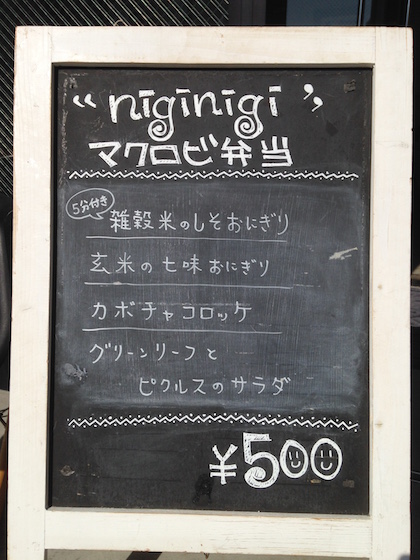 “niginigi”
マクロビ弁当
5分付き
雑穀米のしそおにぎり
玄米の七味おにぎり
カボチャコロッケ
グリーンリーフと
ピクルスのサラダ
¥500